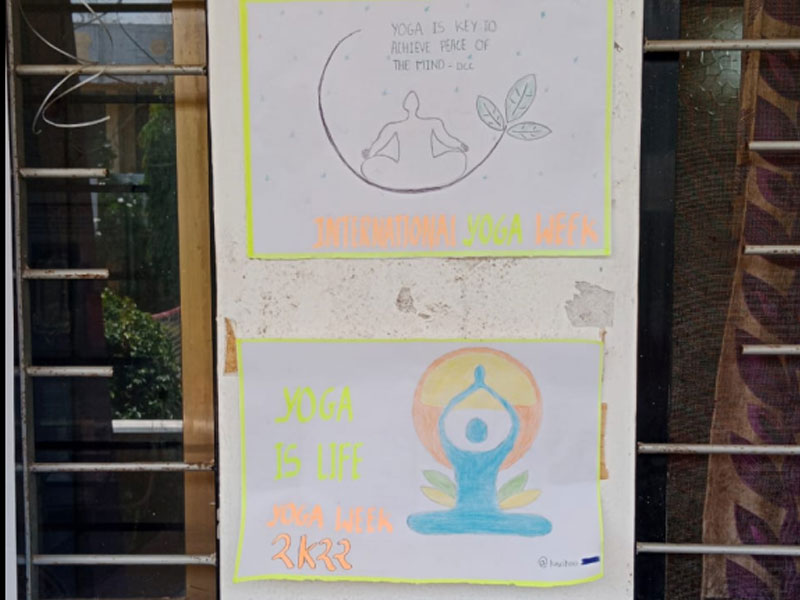 YOGA IS KEY TO
ACHIEVE PEACE OF
THE MIND - DCC
INTERNATIONAL YOGA WEEK
YOGA
IS LIFE
YOGA WEEK
2K22